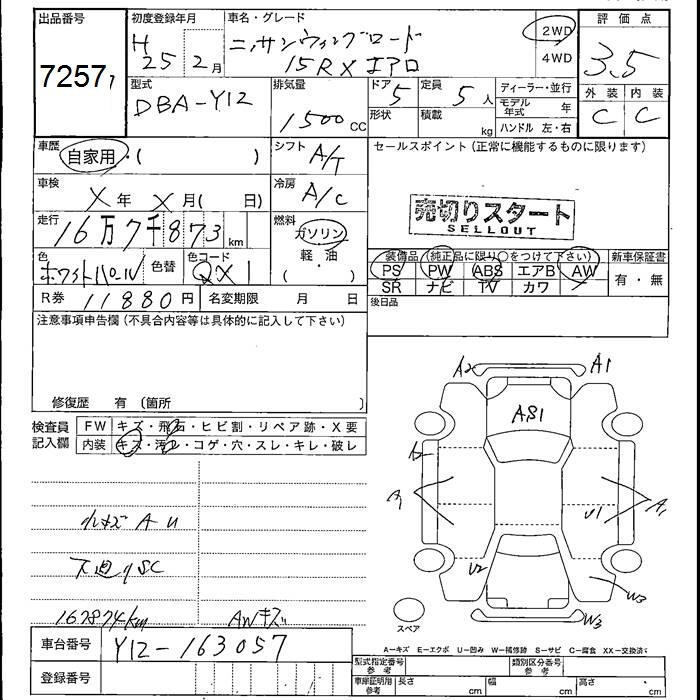 出品番号 初度登録年月 車名・グレード 評価点
7257 H 25 2月 ニッサンウィングロード 2WD 3.5
15RX エアロ 4WD
型式 排気量 ドア 5 定員 5人 ディーラー・並行 外装 内装
DBA-Y12 1500 cc 形状 積載 kg モデル年式 年 C C
ハンドル 左・右
車歴 自家用・( ) シフト A/T セールスポイント(正常に機能するものに限ります)
車検 X年 X月( 日) 冷房 A/C
売切りスタート
SELLOUT
走行 16万7千873km 燃料 ガソリン
軽・油
( )
色 ホワイトパール 色替 色コード QX1
装備品(純正品に限り○をつけて下さい) 新車保証書
PS PW ABS エアB AW 有・無
SR ナビ TV カワ
R券 11880円 名変期限 月 日 後日品
注意事項申告欄(不具合内容等は具体的に記入して下さい)
修復歴 有(箇所 )
検査員 FW キズ・飛石・ヒビ割・リペア跡・X要
記入欄 内装 キズ・汚れ・コゲ・穴・スレ・キレ・破レ
A2 A1
AS1
U1
U2 W3
W3
小キズ AU
下廻りSC
167874km AWキズ
スペア
車台番号 Y12-163057
A-キズ E-エクボ U-凹み W-補修跡 S-サビ C-腐食 XX-交換済
型式指定番号 参考 類別区分番号 参考
登録番号 車庫証明用 参考 長さ cm 幅 cm 高さ cm